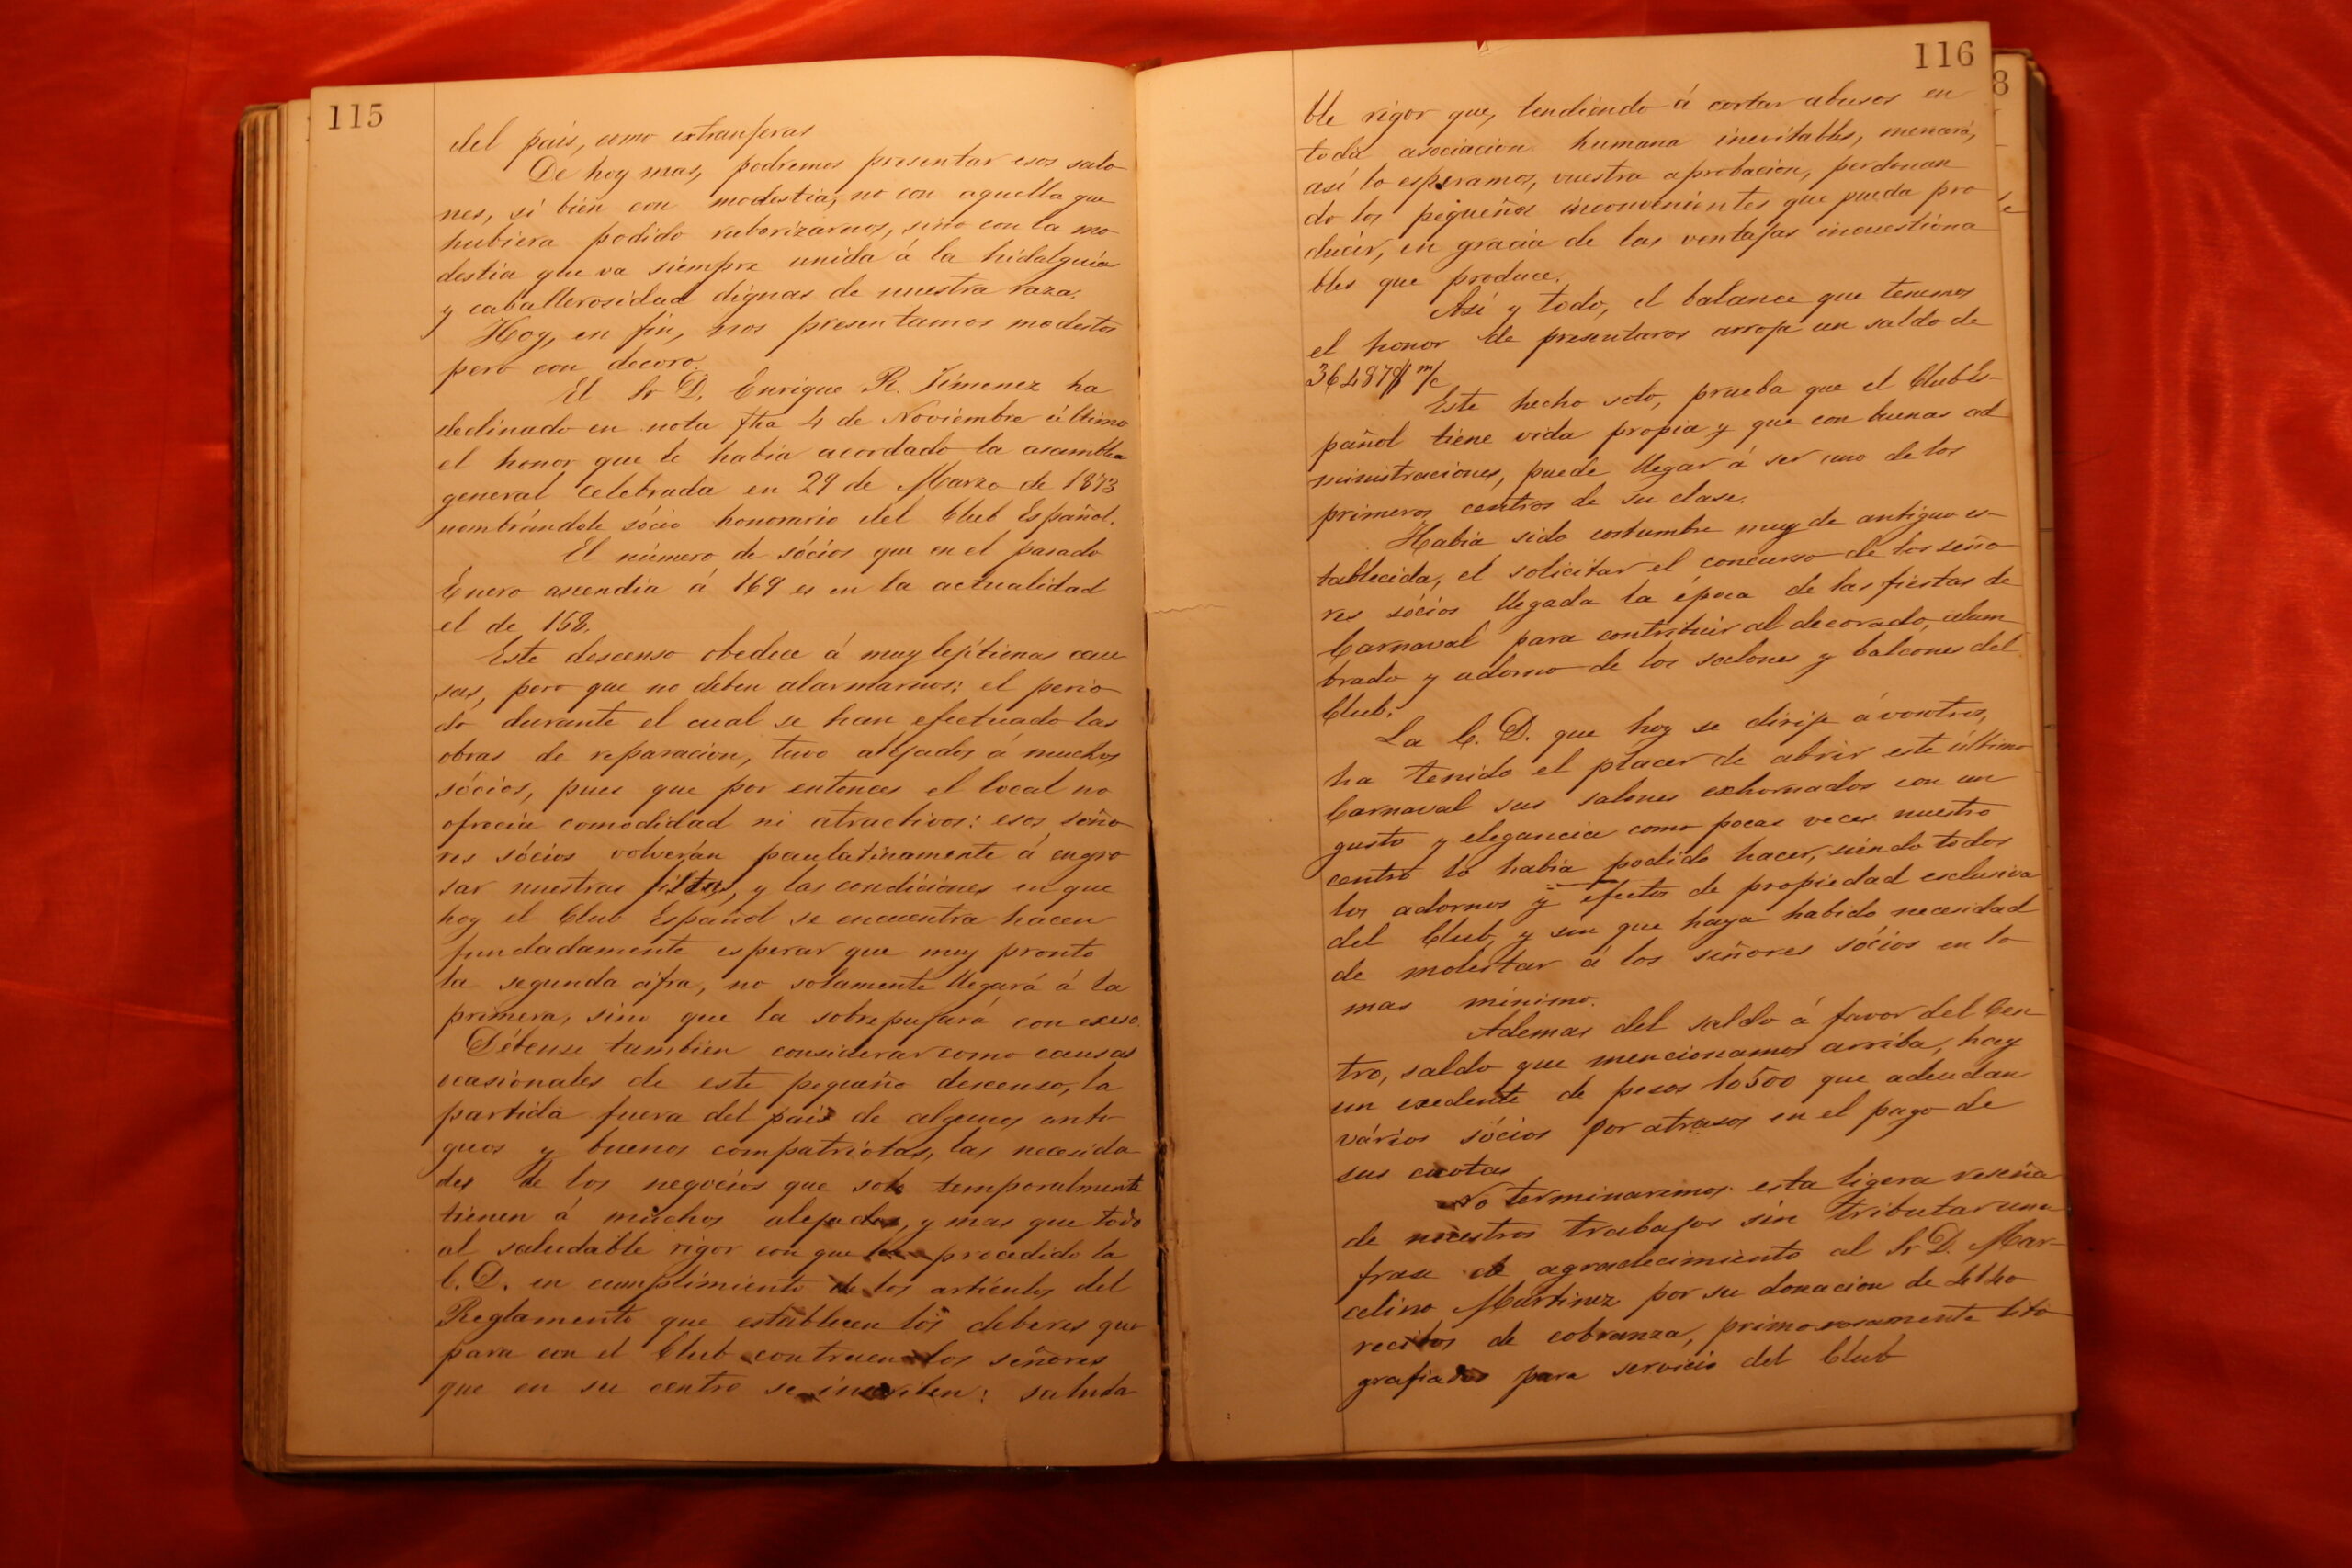 115
del país, como extranjeras
De hoy mas, podremos presentar esos salo
nes, si bien con modestia, no con aquella que
hubiera podido ruborizarnos, sino con la mo
destia que va siempre unida á la hidalguía
y caballerosidad dignas de nuestra raza.
Hoy, en fin, nos presentamos modestos
pero con decoro.
El Sr D. Enrique R. Jimenez ha
declinado en nota fha 4 de Noviembre último
el honor que le habia acordado la asamblea
general celebrada en 29 de Marzo de 1873
nombrándole sócio honorario del Club Español.
El número de sócios que en el pasado
Enero ascendia á 169 es en la actualidad
el de 158.
Este descenso obedece á muy lejítimas cau
sas, pero que no deben alarmarnos: el perio
do durante el cual se han efectuado las
obras de reparacion, tuvo alejados á muchos
sócios, pues que por entonces el local no
ofrecia comodidad ni atractivos: esos seño
res sócios volverán paulatinamente á engro
sar nuestras filas, y las condiciones en que
hoy el Club Español se encuentra hacen
fundadamente esperar que muy pronto
la segunda cifra, no solamente llegará á la
primera, sino que la sobrepujará con exeso.
Débense tambien considerar como causas
ocasionales de este pequeño descenso, la
partida fuera del pais de algunos anti
guos y buenos compatriotas, las necesida
des de los negocios que solo temporalmente
tienen á muchos alejados, y mas que todo
al saludable rigor con que ha procedido la
C. D. en cumplimiento de los artículos del
Reglamento que establecen los deberes que
para con el Club contraen los señores
que en su centro se inscriben: saluda
116
8
ble rigor que, tendiendo á cortar abusos en
toda asociacion humana inevitables, merecerá,
así lo esperamos, vuestra aprobacion, perdonan
do los pequeños inconvenientes que pueda pro
ducir, en gracia de las ventajas incuestiona
bles que produce.
Así y todo, el balance que tenemos
el honor de presentaros arroja un saldo de
36487$ m/c
Este hecho solo, prueba que el Club Es-
pañol tiene vida propia y que con buenas ad
ministraciones, puede llegar á ser uno de los
primeros centros de su clase.
Habia sido costumbre muy de antiguo es-
tablecida, el solicitar el concurso de los seño
res sócios llegada la época de las fiestas de
Carnaval para contribuir al decorado, alum
brado y adorno de los salones y balcones del
Club.
La C. D. que hoy se dirije á vosotros,
ha tenido el placer de abrir este último
Carnaval sus salones exhornados con un
gusto y elegancia como pocas veces nuestro
centro lo habia podido hacer, siendo todos
los adornos y efectos de propiedad esclusiva
del Club, y sin que haya habido necesidad
de molestar á los señores sócios en lo
mas mínimo.
Ademas del saldo á favor del Cen
tro, saldo que mencionamos arriba, hay
un exedente de pesos 10500 que adeudan
vários sócios por atrasos en el pago de
sus cuotas
No terminaremos esta ligera reseña
de nuestros trabajos sin tributar una
frase de agradecimiento al Sr D. Mar-
celino Martinez por su donacion de 4140
recibos de cobranza, primorosamente lito
grafiados para servicio del Club